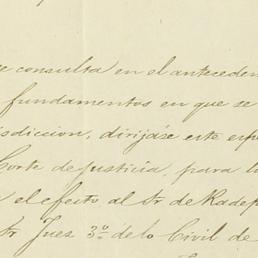 e consulta en el anteceden
fundamentos en que se
isdiccion, dirijáse este exp
Corte de justicia, para lo
el efecto al Sr de Rade
Sr Juez 3º de lo Civil de